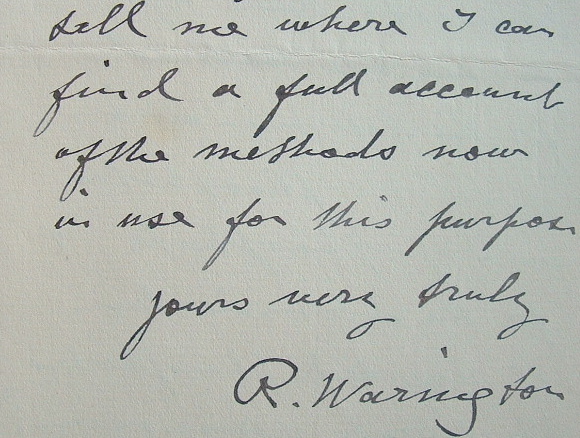 tell me where I can
find a full account
of the methods now
in use for this purpose
yours very truly
R. Warington